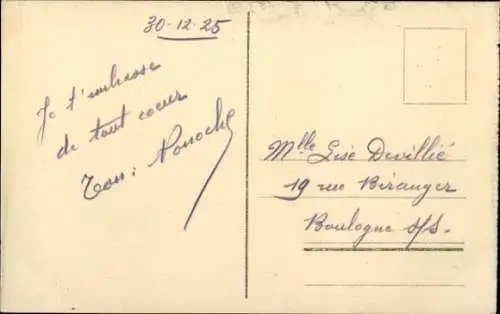 30-12-25
Je t'embrasse
de tout coeur
Ton : Nonoche
Mlle Lise Devillié
19 rue Béranger
Boulogne s/s-